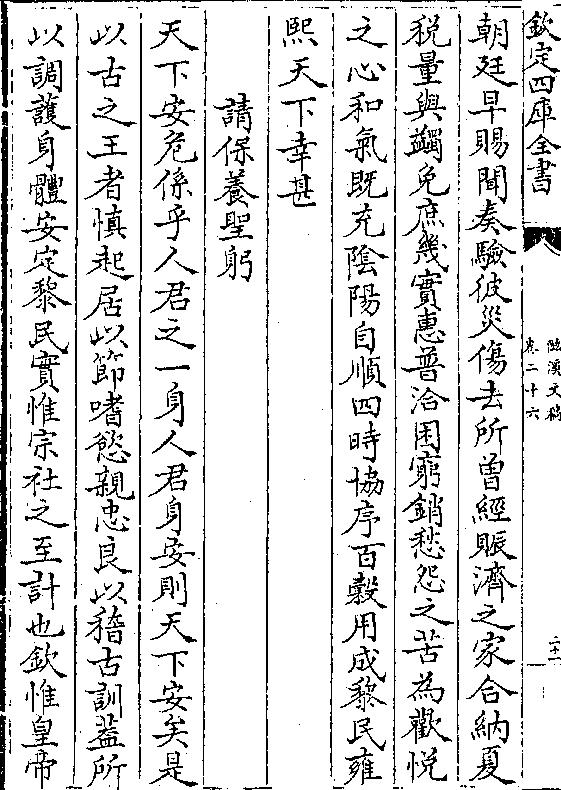 欽定四庫全書
卷二十六
二十一
朝廷早賜聞奏驗彼災傷去所曾經賑濟之家合納夏
稅量與蠲免庶幾實惠普洽困窮銷愁怨之苦為歡悅
之心和氣既充陰陽自順四時協序百穀用成黎民雍
熙天下幸甚
請保養聖躬
天下安危係乎人君之一身人君身安則天下安矣是
以古之王者慎起居以節嗜慾親忠良以稽古訓葢所
以調護身體安定黎民實惟宗社之至計也欽惟皇帝